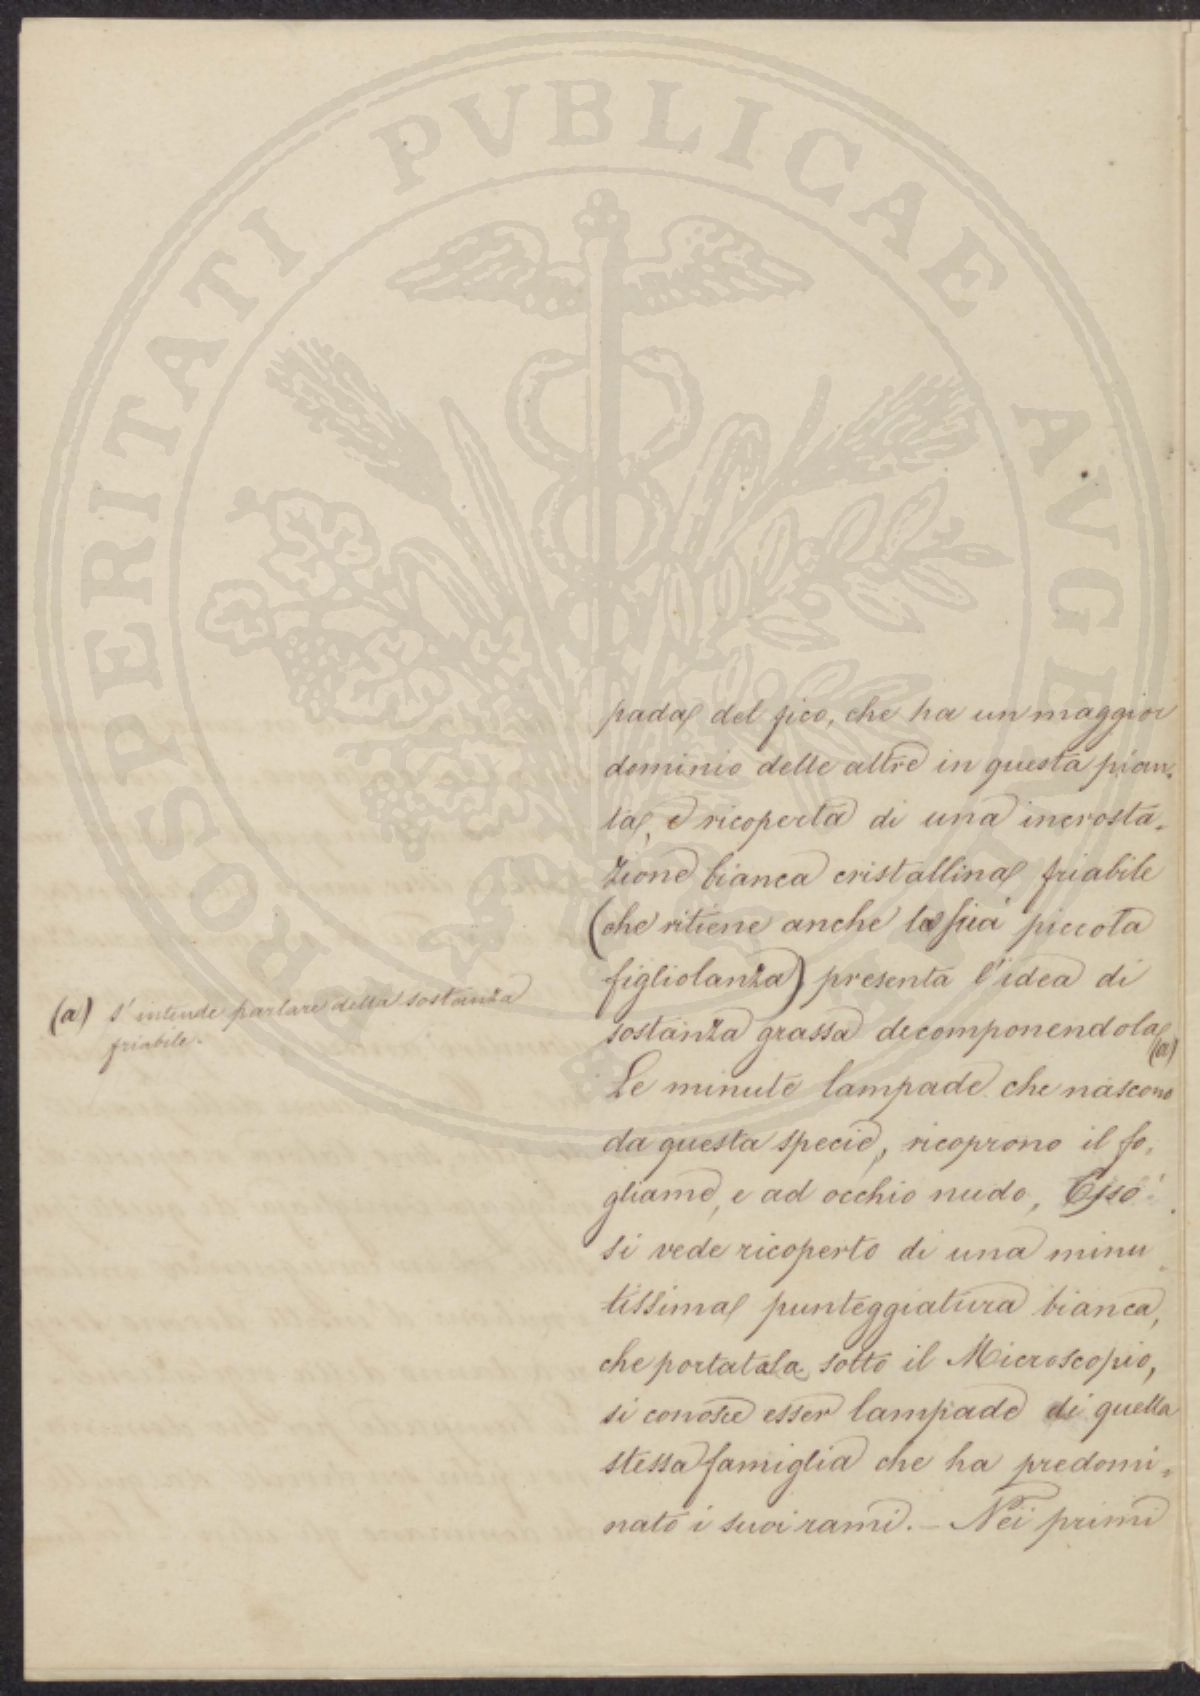 PROSPERITATI PVBLICAE AVGE
pada del fico, che ha un maggior
dominio delle altre in questa pian-
ta, è ricoperta di una incrosta-
zione bianca cristallina friabile
(che ritiene anche la sua piccola
figliolanza) presenta l'idea di
sostanza grassa decomponendola
(a)
Le minute lampade che nascono
da questa specie, ricoprono il fo-
gliame, e ad occhio nudo, Esso
si vede ricoperto di una minu-
tissima punteggiatura bianca,
che portatala sotto il Microscopio,
si conosce esser lampade di quella
stessa famiglia che ha predomi-
nato i suoi rami. – Nei primi
(a) s'intende parlare della sostanza
friabile.